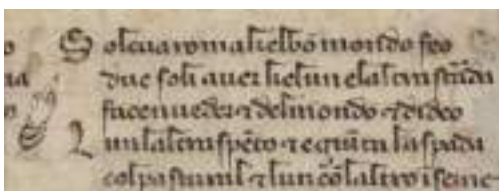 o Soleua roma kel bõ mondo feo
na due soli auer ke lun e laltra strada
o facen ueder ⁊ del mondo ⁊ di deo
Lun laltro a spẽto ⁊ e giũta la spada
col pasturale ⁊ lun cõ laltro iseme